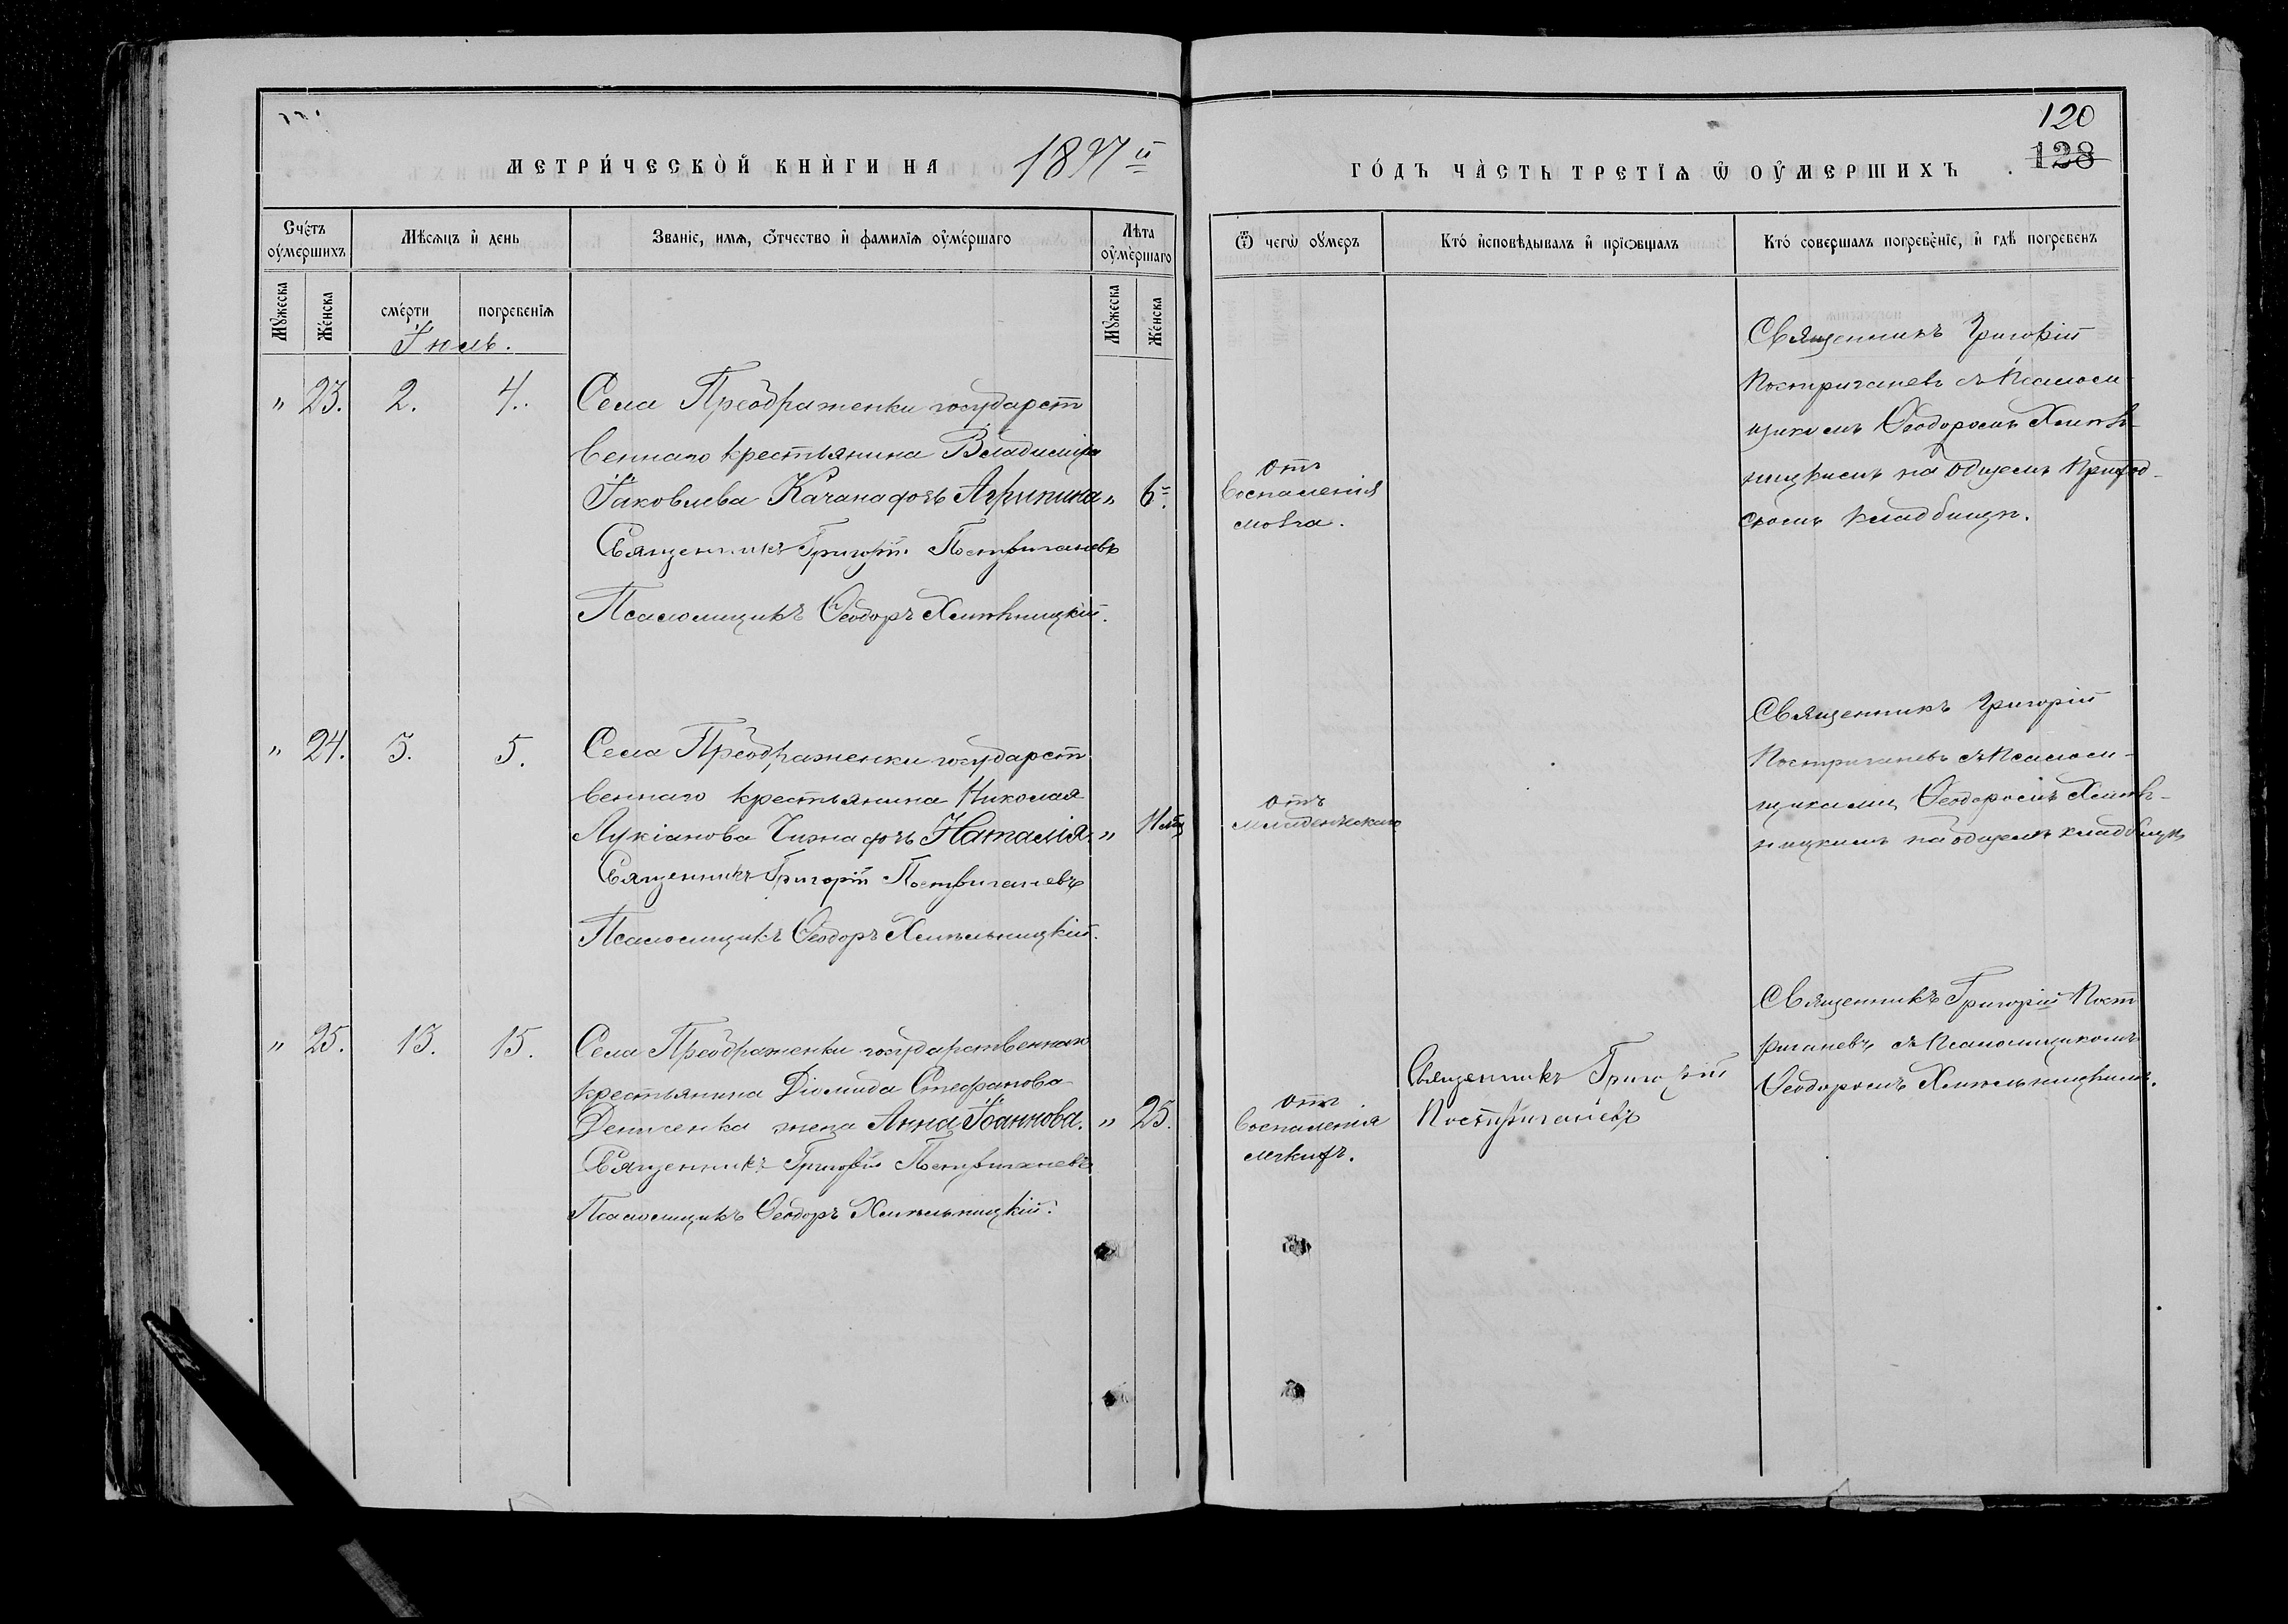 МЕТРИ́ЧЕСКО̀Й КНЍГИ НА 1897 й
ГО́ДЪ ЧА̀СТЬ ТРЕТІѦ Ѡ҆ ОУ҆МЕРШИХЪ
120
128
Сче́тъ оу҆ме́ршихъ
Мѣ́сѧцъ и҆ день
Зва́ніе, и҆мѧ, ѻ҆́тчество и҆ фами́лїѧ оу҆ме́ршаго
Лѣ́та оу҆ме́ршаго
Ѿ чегѡ̀ оу҆́меръ
Кто́ и҆сповѣ́дывалъ и҆ прїѡбща́лъ
Кто́ соверша́лъ погребе́нїе, и҆ гдѣ̀ погребе́нъ
Мꙋ́жеска
Же́нска
сме́рти
погребе́нїѧ
Мꙋ́жеска
Же́нска
Іюль.
" 23. 2. 4.
Села Преображенки государст
веннаго крестьянина Владиміра
Іаковлева Качана дочь Агрипина
" 6
Священникъ Григорій Постриганевъ
Псаломщикъ Ѳеодоръ Хмѣльницкій.
отъ
воспаленія
мозга.
Священникъ Григорій
Постриганевъ съ Псалом-
щикомъ Ѳеодоромъ Хмѣль-
ницкимъ на общемъ приход-
скомъ кладбищѣ.
" 24. 3. 5.
Села Преображенки государст
веннаго крестьянина Николая
Лукіанова Чижа дочь Наталія
"
Священникъ Григорій Постриганевъ
Псаломщикъ Ѳеодоръ Хмѣльницкій.
отъ
младенческаго
Священникъ Григорій
Постриганевъ съ Псалом-
щикомъ Ѳеодоромъ Хмѣль-
ницкимъ на общемъ кладбищѣ
" 25. 13. 15.
Села Преображенки государственнаго
крестьянина Діомида Стефанова
Денисенка жена Анна Іоаннова.
" 25.
Священникъ Григорій Постриганевъ
Псаломщикъ Ѳеодоръ Хмѣльницкій.
отъ
воспаленія
легкихъ.
Священникъ Григорій
Постриганевъ
Священникъ Григорій Пост
риганевъ съ Псаломщикомъ
Ѳеодоромъ Хмѣльницкимъ.